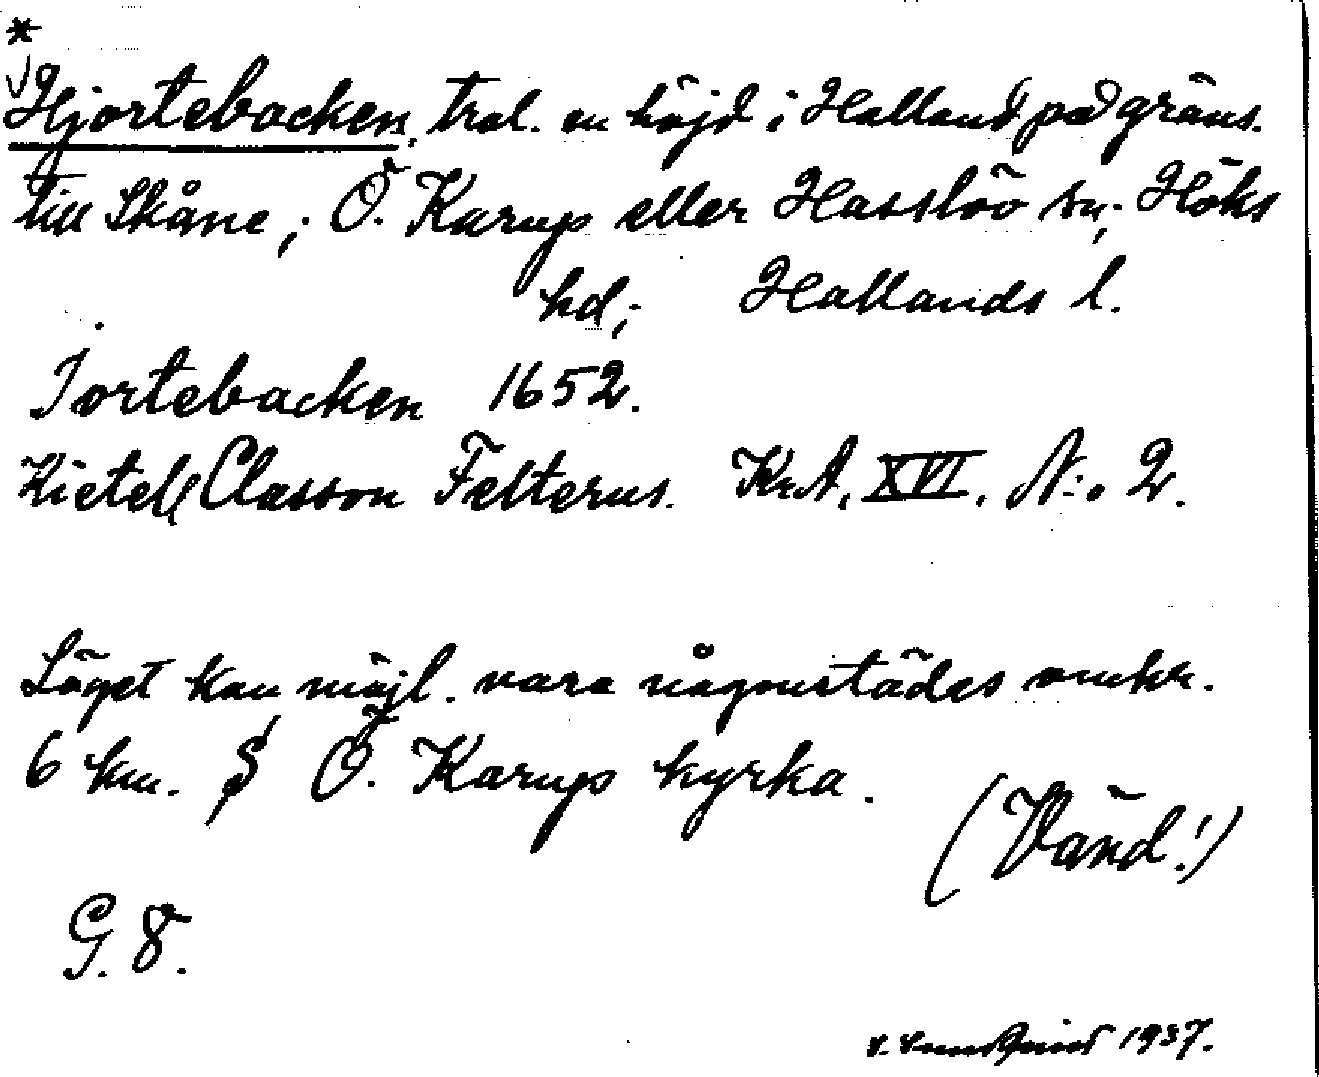 *
Hjortebacken, trol. en höjd i Halland på gräns.
till Skåne; Ö. Karup eller Hasslöv sn; Höks
hd; Hallands l.
Jortebacken 1652.
Kietell Classon Felterus. Kr.A. XVI. N:o 2.
Läget kan möjl. vara någonstädes omkr.
6 km. S Ö. Karups kyrka.
(Vänd!)
G. 8.
1937.